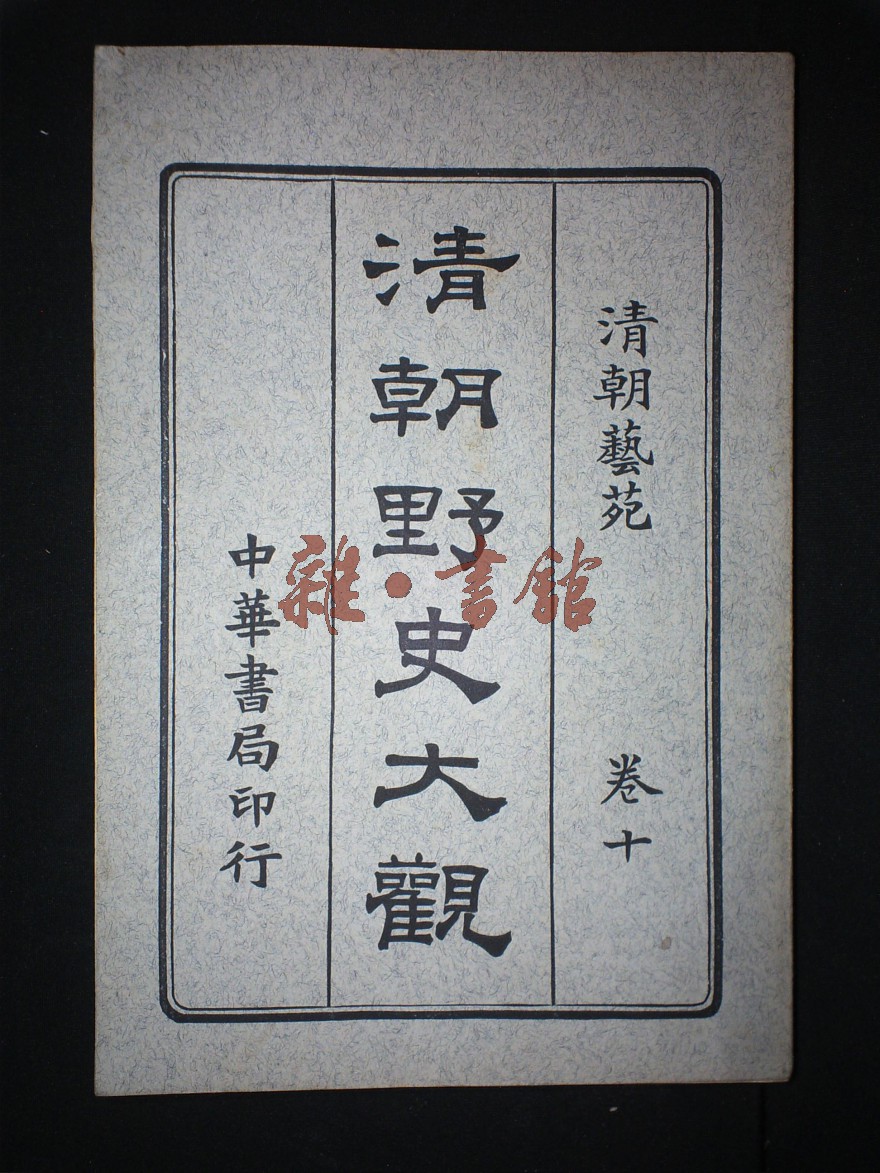 清朝藝苑
卷十
清朝野史大觀
中華書局印行
雜·書館